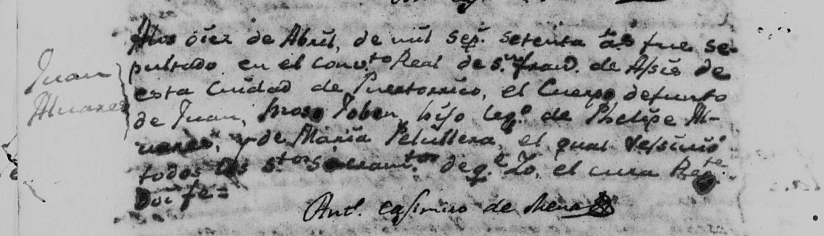 Juan
Alvares
A los diez de Abril, de mil sep.s setenta a.s fue se-
pultado en el Conv.to Real de S.n Fran.co de Assis de
esta Ciudad de Puertorrico, el Cuerpo defunto
de Juan, moso Joben, hijo leg.o de Phelipe Al-
vares, y de Maria, el qual recivió
todos los S.tos Sacram.tos de q.e Yo, el cura Rec.te
Doi fe=
Ant.o Casimiro de Mena